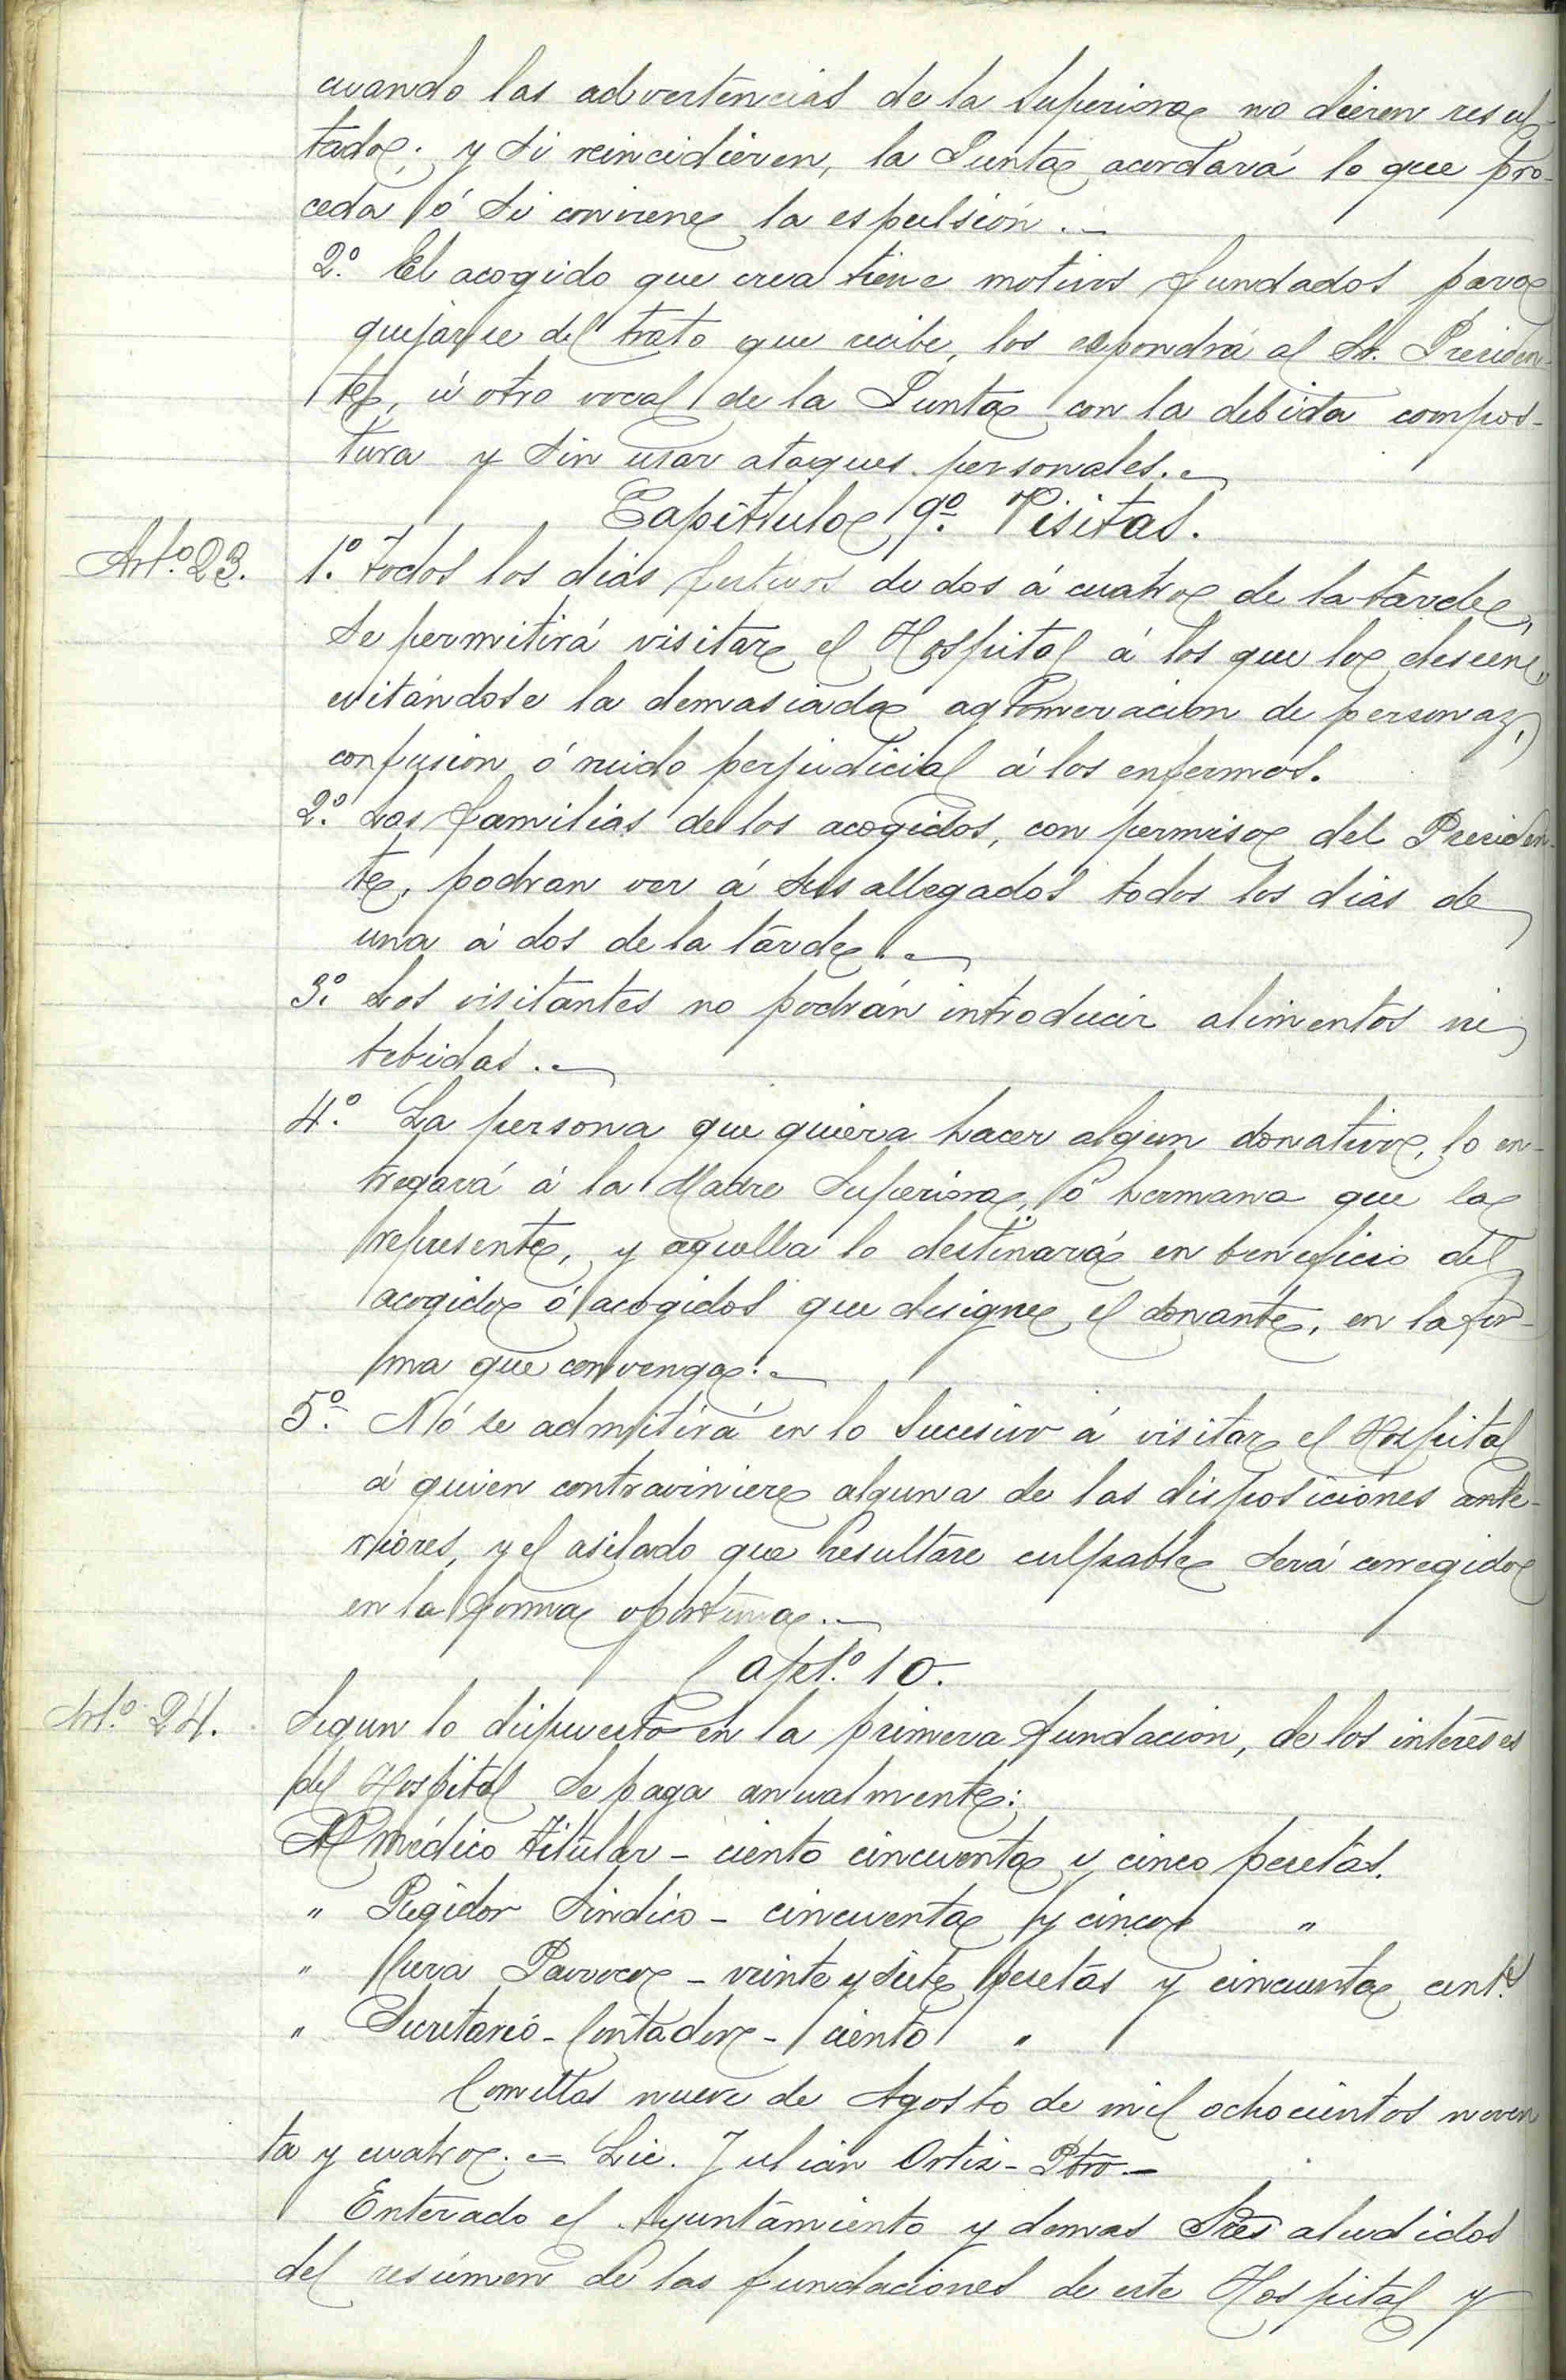 cuando las advertencias de la Superiora no dieren resul-
tado; y si reincidieren, la Junta acordará lo que pro-
ceda ó si conviene la espulsión.-
2.º El acogido que crea tiene motivos fundados para
quejarse del trato que recibe, los espondrá al Sr. Presiden-
te, ú otro vocal de la Junta con la debida compos-
tura y sin usar ataques personales.-
Capítulo 9.º Visitas.
Art.º 23. 1.º Todos los dias festivos de dos á cuatro de la tarde,
se permitirá visitar el Hospital á los que lo deseen,
evitándose la demasiada aglomeracion de personas,
confusion ó ruido perjudicial á los enfermos.
2.º Las familias de los acogidos, con permiso del Presiden-
te, podran ver á sus allegados todos los dias de
una á dos de la tarde.-
3.º Los visitantes no podrán introducir alimentos ni
bebidas.-
4.º La persona que quiera hacer algun donativo, lo en-
tregará á la Madre Superiora, ó hermana que la
represente, y aquella lo destinará en beneficio del
acogido ó acogidos que designe el donante, en la for-
ma que convenga.-
5.º Nó se admitirá en lo sucesivo á visitar el Hospital
á quien contraviniere alguna de las disposiciones ante-
riores, y el asilado que resultare culpable será corregido
en la forma oportuna.-
Capt.º 10.
Art.º 24. Segun lo dispuesto en la primera fundacion, de los intereses
del Hospital se paga anualmente:
Al médico titular - ciento cincuenta y cinco pesetas.
" Regidor Sindico - cincuenta y cinco "
" Cura Parroco - veinte y siete pesetas y cincuenta cent.s
" Secretario-Contador - ciento "
Comillas nueve de Agosto de mil ochocientos noven
ta y cuatro. = Lic. Julian Ortiz - Pbro -
Enterado el Ayuntamiento y demas Sres aludidos
del resúmen de las fundaciones de este Hospital y